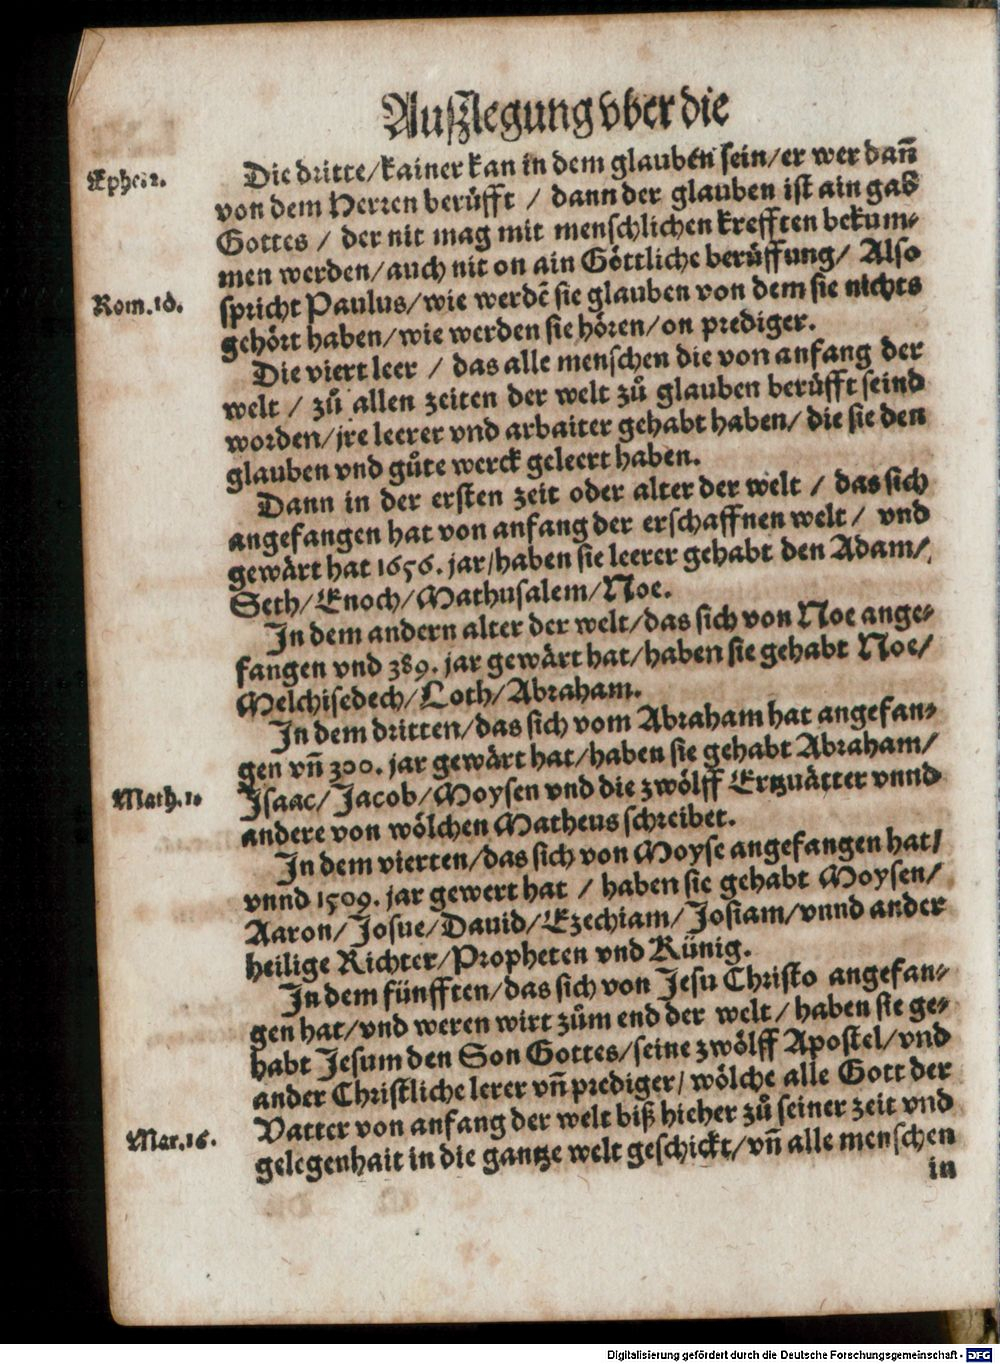 Außlegung vber die
Ephe. 2.
Die dritte/kainer kan in dem glauben sein/er wer dañ
von dem Herren berüfft / dann der glauben ist ain gab
Gottes / der nit mag mit menschlichen krefften bekum-
men werden/auch nit on ain Göttliche berüffung/ Also
Rom. 10.
spricht Paulus/wie werdẽ sie glauben von dem sie nichts
gehört haben/wie werden sie hören/on prediger.
Die viert leer / das alle menschen die von anfang der
welt / zů allen zeiten der welt zů glauben berüfft seind
worden/jre leerer vnd arbaiter gehabt haben/ die sie den
glauben vnd gůte werck geleert haben.
Dann in der ersten zeit oder alter der welt / das sich
angefangen hat von anfang der erschaffnen welt / vnd
gewärt hat 1656. jar/haben sie leerer gehabt den Adam/
Seth/Enoch/Mathusalem/Noe.
In dem andern alter der welt/das sich von Noe ange-
fangen vnd 389. jar gewärt hat/haben sie gehabt Noe/
Melchisedech/Loth/Abraham.
In dem dritten/das sich vom Abraham hat angefan-
gen vñ 300. jar gewärt hat/haben sie gehabt Abraham/
Math. 1.
Isaac/Jacob/Moysen vnd die zwölff Ertzuätter vnnd
andere von wölchen Matheus schreibet.
In dem vierten/das sich von Moyse angefangen hat/
vnnd 1509. jar gewert hat / haben sie gehabt Moysen/
Aaron/Josue/Dauid/Ezechiam/Josiam/vnnd ander
heilige Richter/Propheten vnd Künig.
In dem fünfften/das sich von Jesu Christo angefan-
gen hat/vnd weren wirt zům end der welt / haben sie ge-
habt Jesum den Son Gottes/seine zwölff Apostel/vnd
ander Christliche lerer vñ prediger/ wölche alle Gott der
Mar. 16.
Vatter von anfang der welt biß hieher zů seiner zeit vnd
gelegenhait in die gantze welt geschickt/vñ alle menschen
in
Digitalisierung gefördert durch die Deutsche Forschungsgemeinschaft - DFG